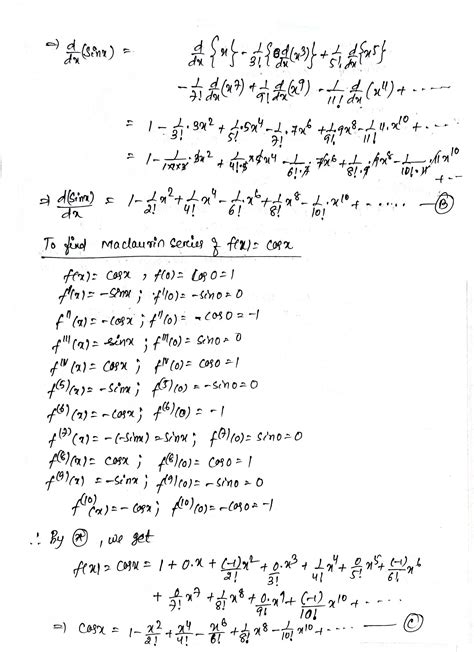 ⇒ d/dx (sinx) = d/dx {x} - 1/3! {d/dx(x³)} + 1/5! d/dx {x5}
- 1/7! d/dx (x7) + 1/9! d/dx (x9) - 1/11! d/dx (x11) + ......
= 1 - 1/3! . 3x² + 1/5! . 5x4 - 1/7! . 7x6 + 1/9! . 9x8 - 1/11! 11. x10 + ....
⇒ d(sinx)/dx = 1 - 1/2! x² + 1/4! x4 - 1/6! x6 + 1/8! x8 - 1/10! x10 + ...... (B)
To find Maclaurin series of f(x) = cosx
f(x) = cosx , f(0) = cos0 = 1
f'(x) = -sinx ; f'(0) = -sin0 = 0
f''(x) = -cosx ; f''(0) = -cos0 = -1
f'''(x) = sinx ; f'''(0) = sin0 = 0
f^IV(x) = cosx ; f^IV(0) = cos0 = 1
f^(5)(x) = -sinx ; f^(5)(0) = -sin0 = 0
f^(6)(x) = -cosx ; f^(6)(0) = -1
f^(7)(x) = -(-sinx) = sinx ; f^(7)(0) = sin0 = 0
f^(8)(x) = cosx ; f^(8)(0) = cos0 = 1
f^(9)(x) = -sinx ; f^(9)(0) = -sin0 = 0
f^(10)(x) = -cosx ; f^(10)(0) = -cos0 = -1
∴ By (*) , we get
f(x) = cosx = 1 + 0.x + (-1)/2! x² + 0/3! x³ + 1/4! x4 + 0/5! x5 + (-1)/6! x6
+ 0/7! x7 + 1/8! x8 + 0/9! x9 + (-1)/10! x10 + .....
⇒ cosx = 1 - x²/2! + x4/4! - x6/6! + 1/8! x8 - 1/10! x10 + ....... (C)